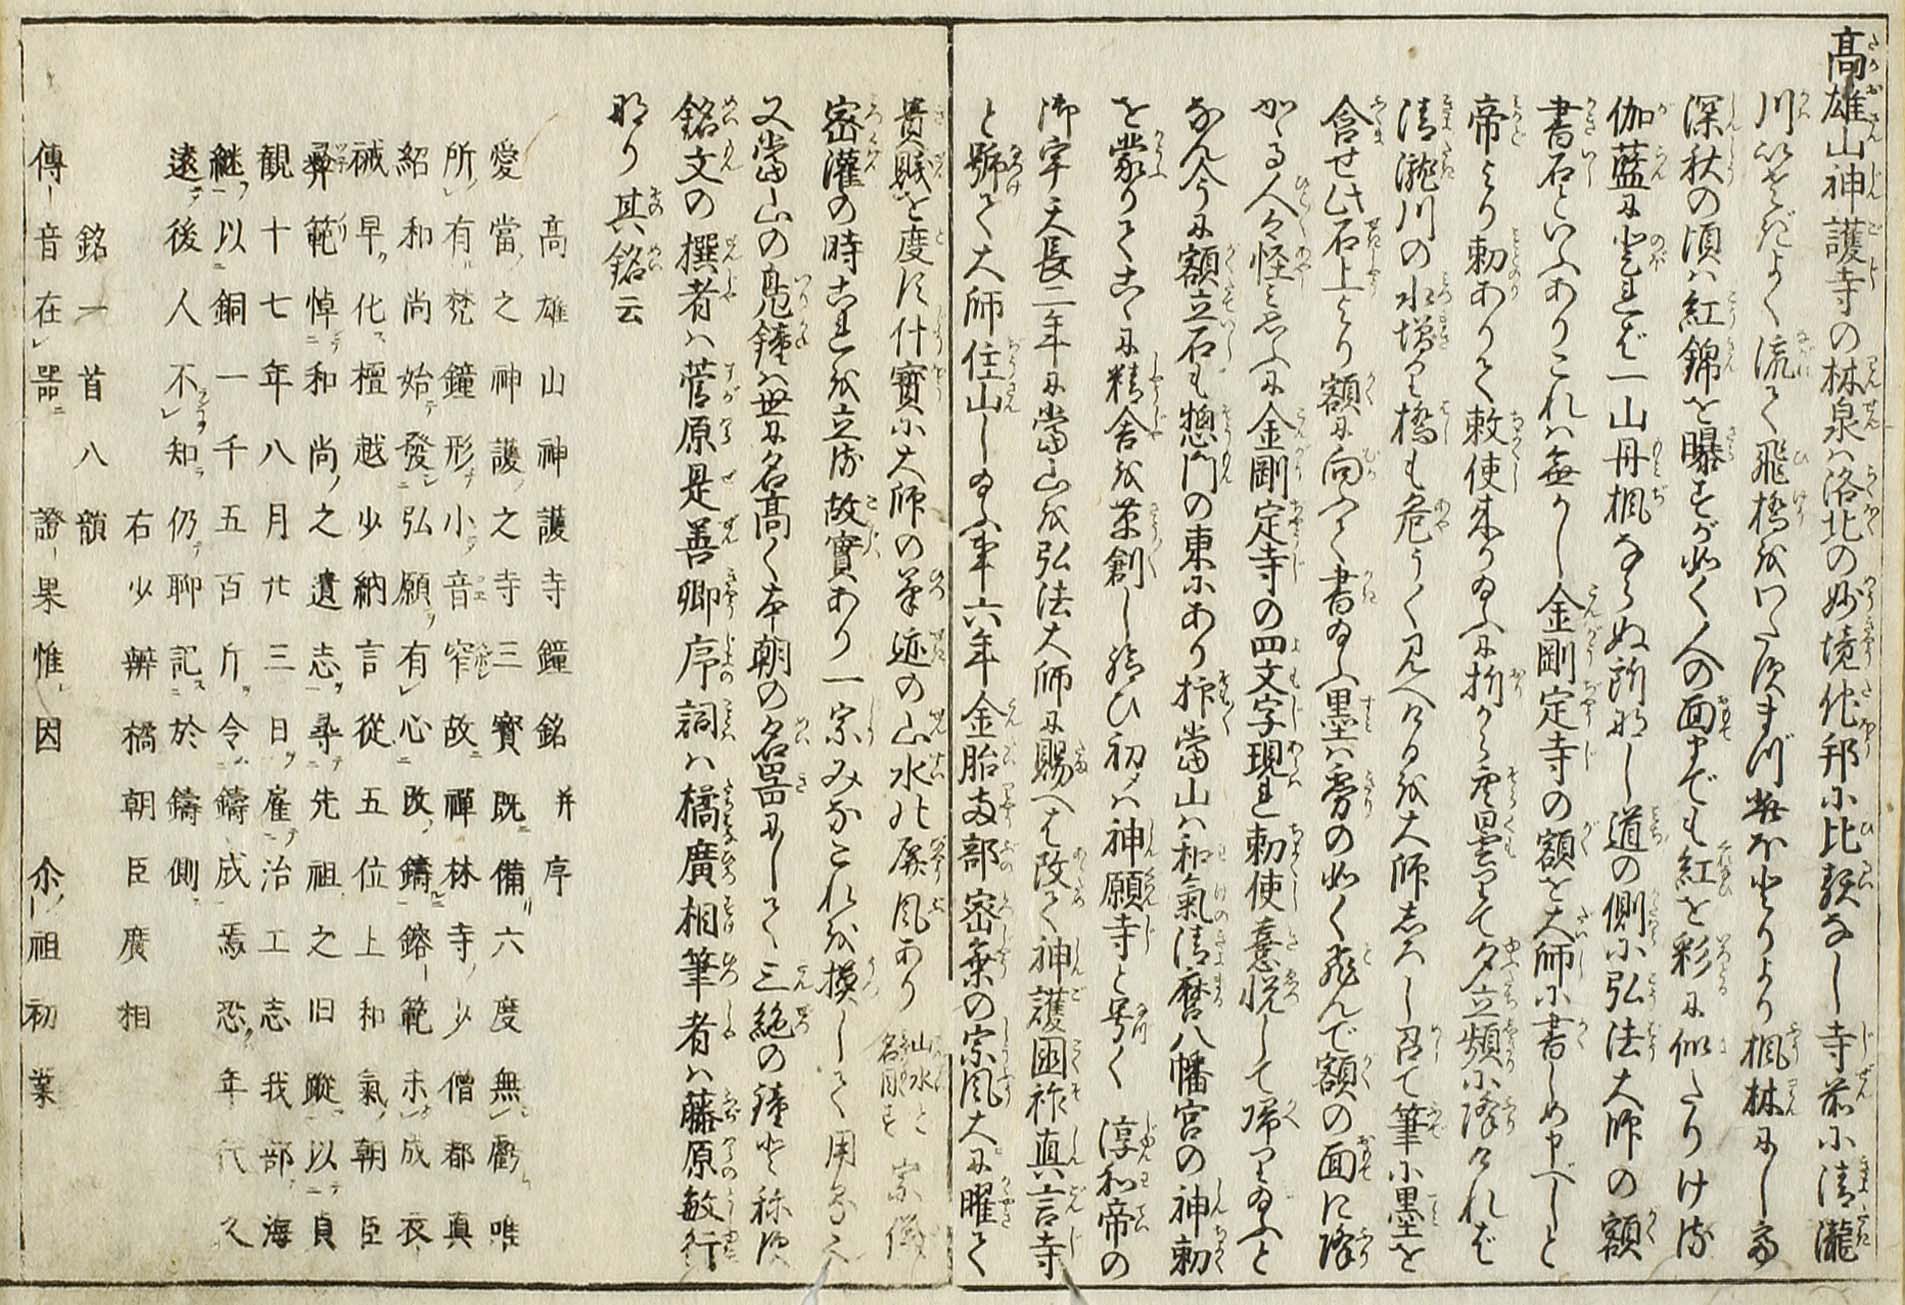 高雄山神護寺の林泉ハ洛北の妙境他邦に比類なし寺前に清瀧
川いさぎよく流て飛橋をわたすまづ麓に楓林にして
深秋の頃ハ紅錦を曝すが如く人の面までも紅を彩に似たりけり
伽藍に登れば一山丹楓ならぬ所なし道の側に弘法大師の額
書石といふありこれハ無かし金剛定寺の額を大師に書しめ申べしと
帝より勅ありて敕使来り給ふに折から雲りて夕立頻に降けれバ
清瀧川の水増り橋も危うく見へけるを大師しろし召て筆に墨を
含せ此石上より額に向ふて書給ふ墨ハ雰の如く飛んで額の面に降
かゝる人々怪と思ふに金剛定寺の四文字現れ勅使喜悦して帰り給ふと
なん今に額立石も惣門の東にあり抑當山ハ和氣清麿八幡宮の神勅
を蒙りてこゝに精舎を草創し給ひ初ハ神願寺と号く淳和帝の
御宇天長二年に當山を弘法大師に賜へば改て神護国祚真言寺
と號て大師住山し給ふ事六年金胎両部密乗の宗風大に曜て
貴賎を度す什寳に大師の筆迹の山水の屏風あり 山水と名月を 宗儀
密灌の時これを立る故實あり一宗みなこれを摸して用る之
又當山の鳬鐘ハ世に名高く本朝の名噐にして三絶の鐘と称す
銘文の撰者ハ菅原是善卿序詞ハ橘廣相筆者ハ藤原敏行
なり其銘云
髙雄山神護寺鐘銘并序
愛當之神護之寺三寳既備六度無虧唯
所有梵鐘形小音窄故禪林寺少僧都真
紹和尚始發弘願有心改鑄鎔範未成衣
祴早化檀越少納言從五位上和氣朝臣
彜範悼和尚之遺志尋先祖之旧蹤以貞
観十七年八月廿三日雇治工志我部海
継以銅一千五百斤令鑄成焉恐年代久
遠後人不知仍聊記於鑄側
右少辨橘朝臣廣相
銘一首八韻
傳音在噐 證果惟因 尒祖初業